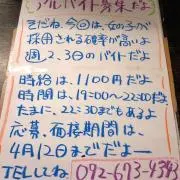 アルバイト募集だよ
そだね今回は、女の子が
採用される確率が高いよ
週、2、3日のバイトだよ
時給は、1100円だよ
時間は、19:00〜22:00だよ
たまに、22:30までもあるよ
応募、面接期間は、
4月12日までだよー
TELしてね 092-693-4343